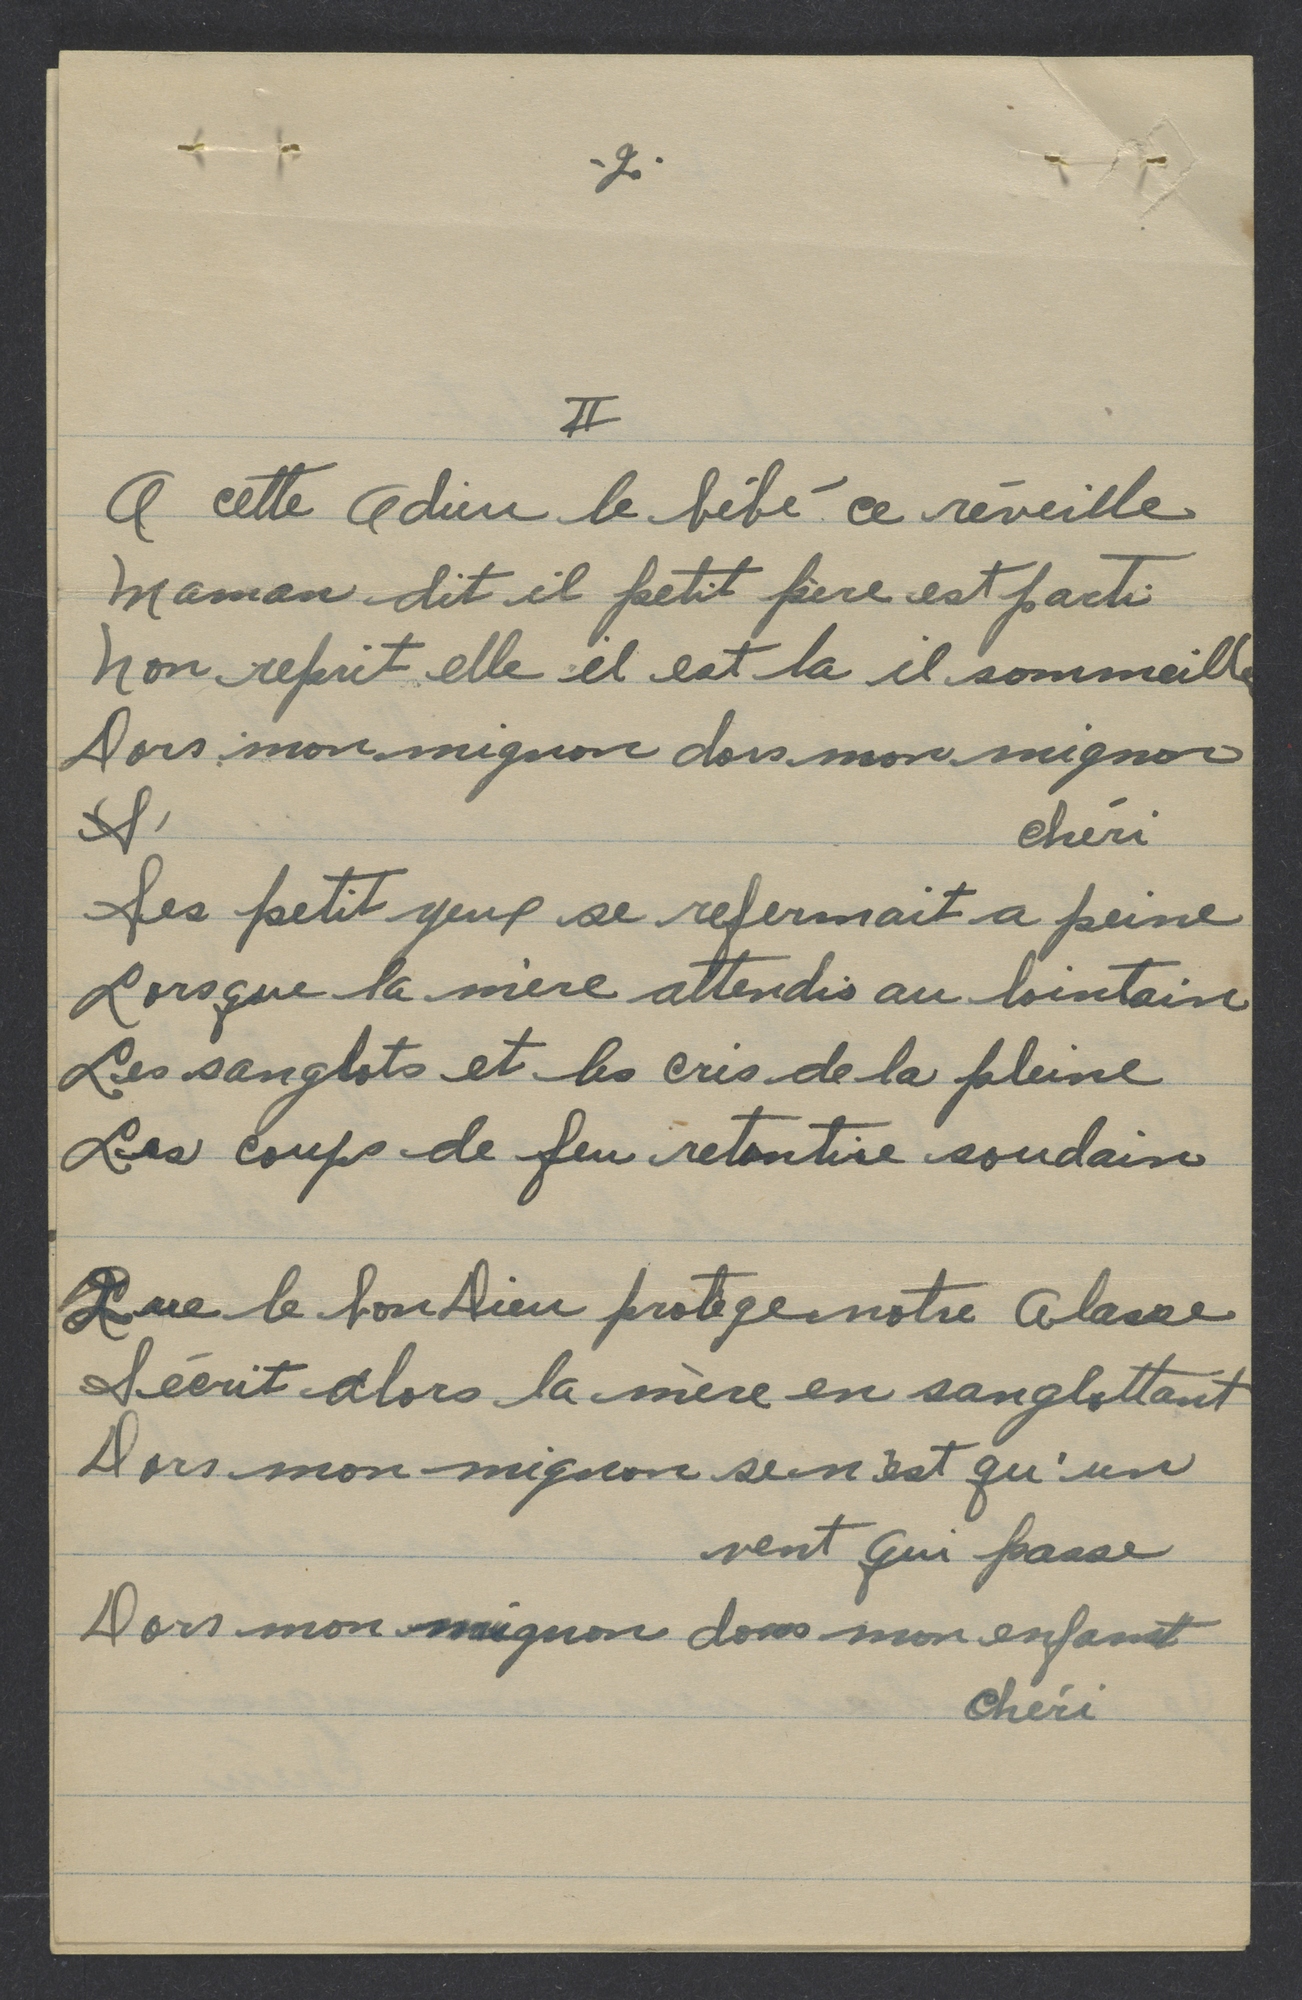 -2.
II
A cette Adieu le bébé ce réveille
Maman dit il petit père est parti
Non reprit elle il est la il sommeille
Dors mon mignon dors mon mignon
chéri
Ses petit yeux se refermait a peine
Lorsque la mère attendis au lointain
Les sanglots et les cris de la pleine
Les coups de feu retentire soudain
Que le bon Dieu protège notre Alasse
S'écrit alors la mère en sanglottant
Dors mon mignon se n'est qu'un
vent qui passe
Dors mon mignon dors mon enfant
chéri